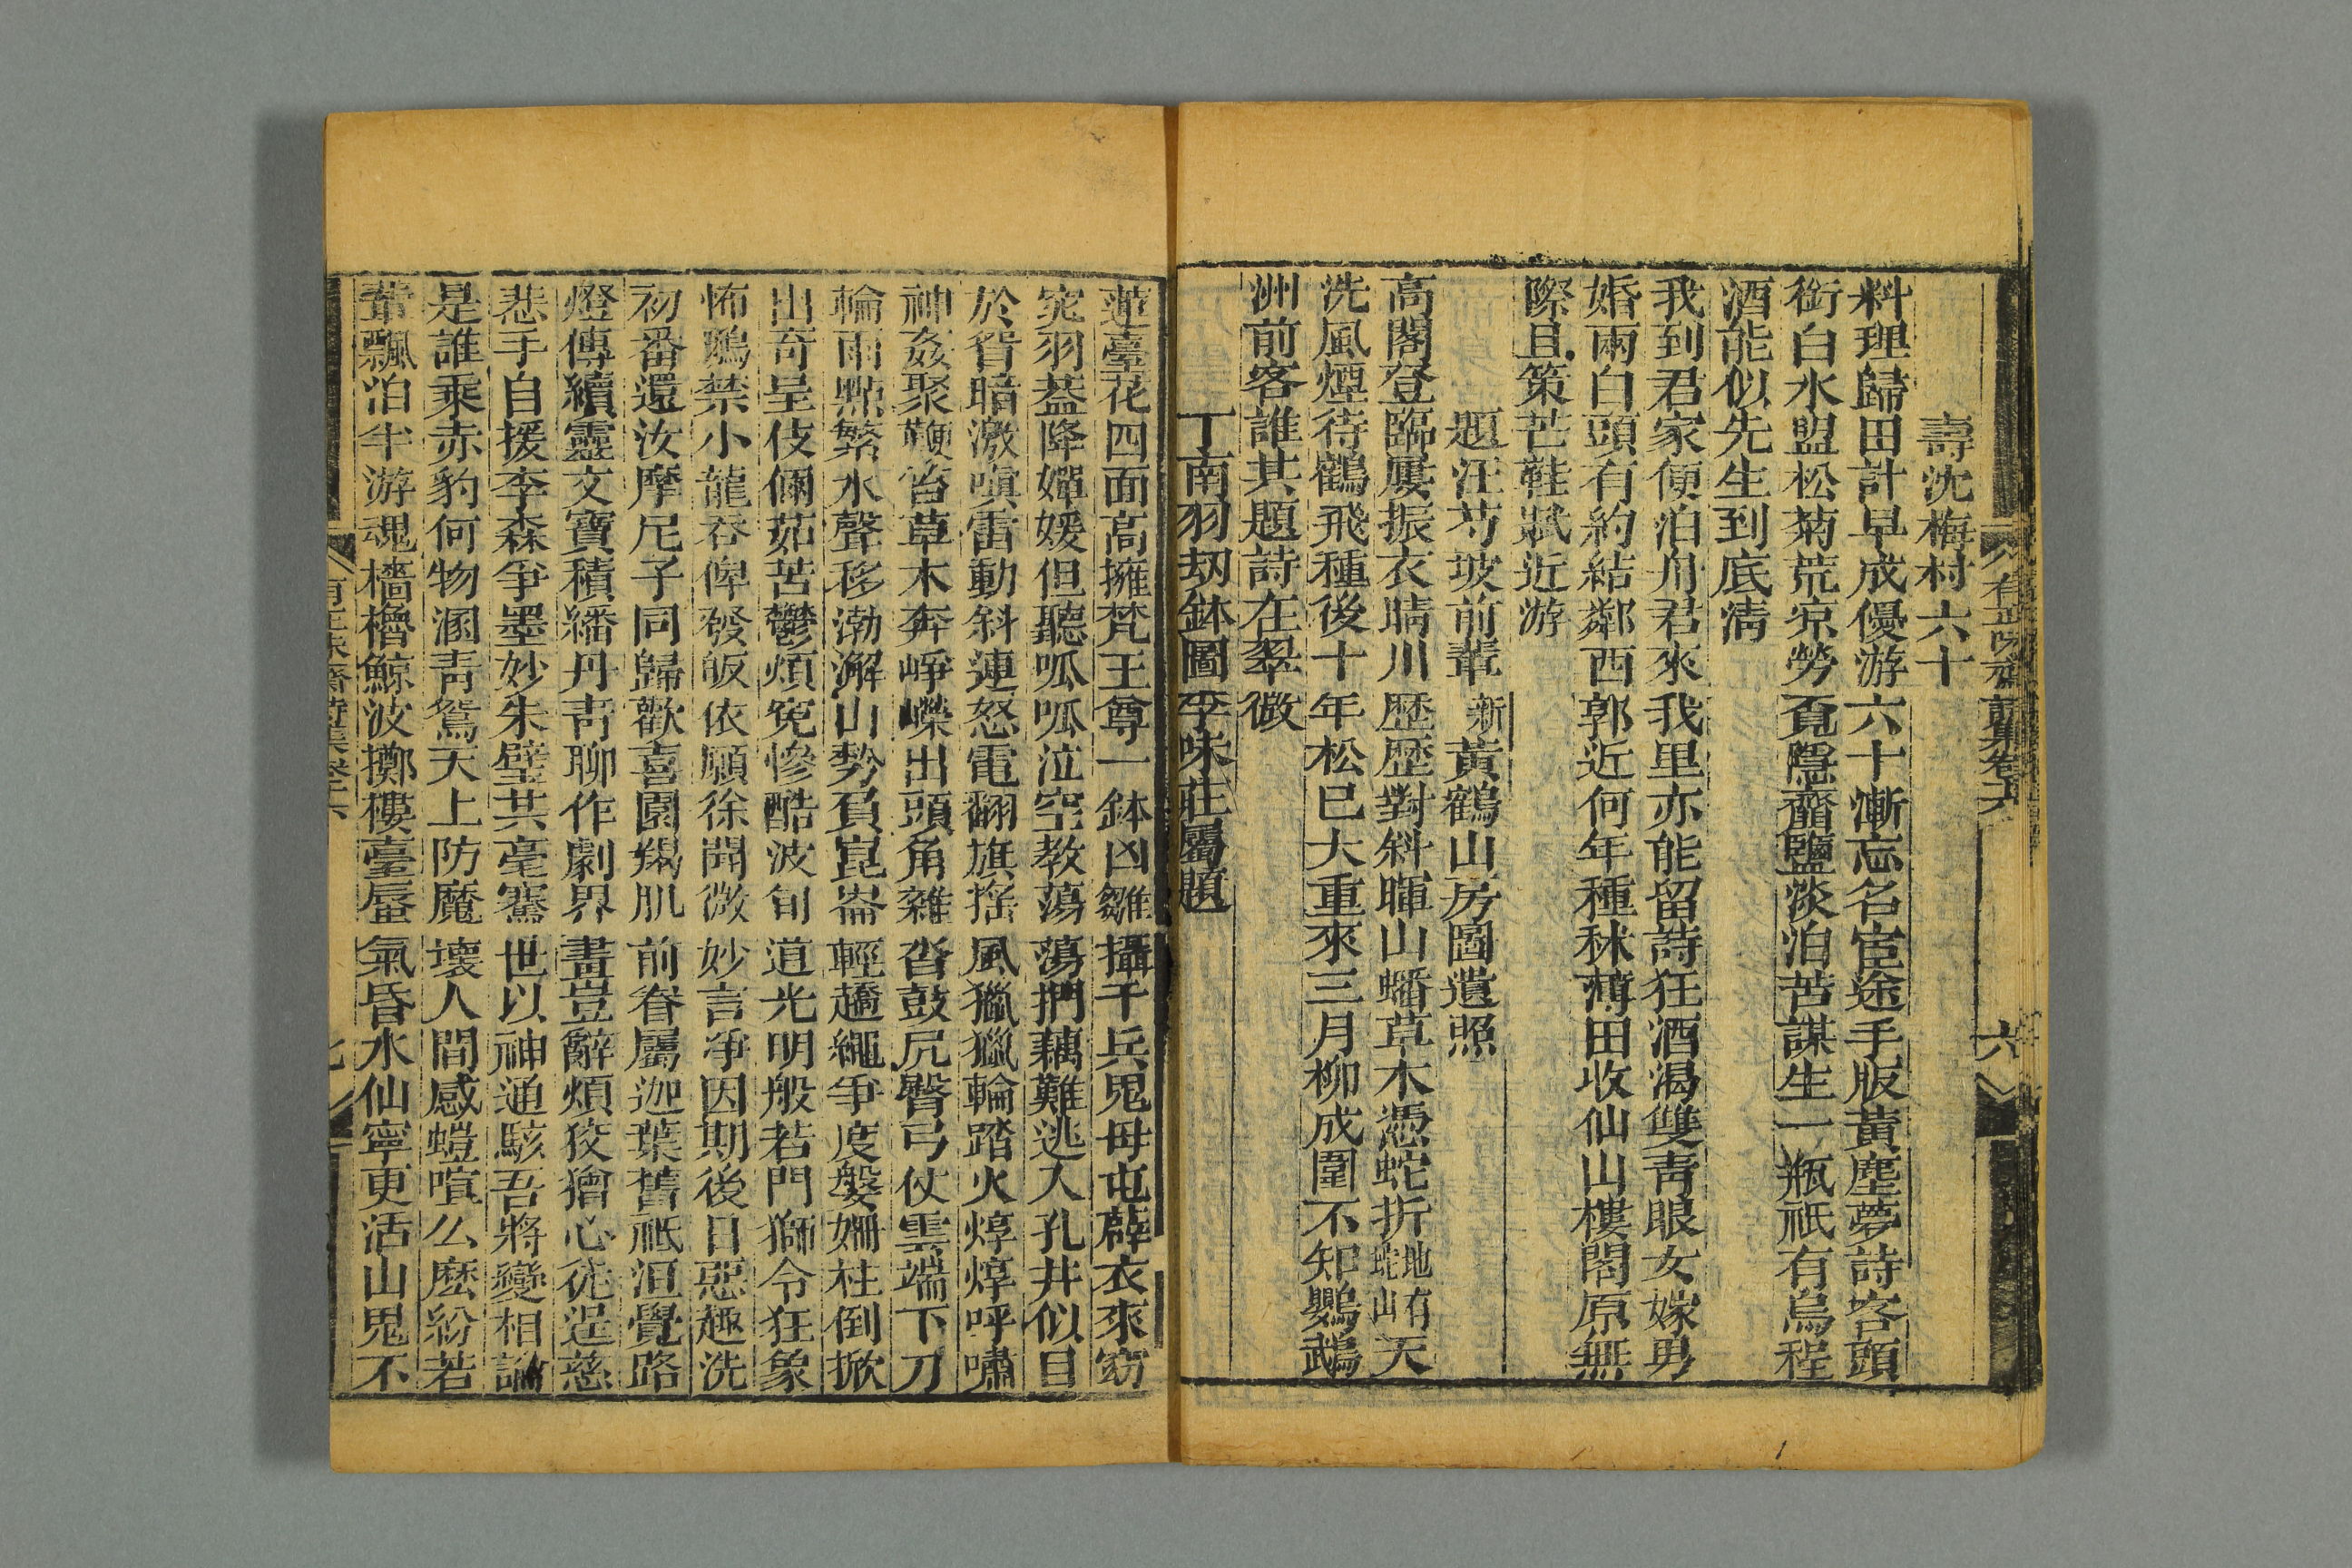 壽沈梅村六十
料理歸田計早成優游六十漸忘名宦途手版黃塵夢詩客頭
銜白水盟松菊荒涼勞覔隱齏鹽淡泊苦謀生一瓶祇有烏程
酒能似先生到底淸
我到君家便泊舟君來我里亦能留詩狂酒渴雙靑眼女嫁男
婚兩白頭有約結鄰西郭近何年種秫薄田收仙山樓閣原無
際且策芒鞋賦近游
題汪芍坡前輩新黃鶴山房圖遺照
高閣登臨屢振衣晴川歷歷對斜暉山蟠草木憑蛇折地有蛇山天
洗風煙待鶴飛種後十年松已大重來三月柳成圍不知鸚鵡
洲前客誰其題詩在翠微
丁南羽劫鉢圖李味莊屬題
有正味齋詩集卷六
六
蓮臺花四面高擁梵王尊一鉢凶雛攝千兵鬼母屯薜衣來窈
窕羽葢降嬋媛但聽呱呱泣空教蕩蕩捫藕難逃入孔井似目
於眢暗激嗔雷動斜連怒電翻旗搖風獵獵輪踏火焞焞呼嘯
神姦聚鞭笞草木奔崢嶸出頭角雜沓鼓尻臀弓仗雲端下刀
輪雨點繁水聲移渤澥山勢負崑崙輕趫繩爭度媻姍柱倒掀
出奇呈伎倆茹苦鬱煩寃慘酷波旬道光明般若門獅令狂象
怖鴟禁小龍吞俾發皈依願徐開微妙言淨因期後日惡趣洗
初番還汝摩尼子同歸歡喜園羯肌前眷屬迦葉舊祗洹覺路
燈傳續靈文寶積繙丹靑聊作劇界畫豈辭煩狡獪心徒逞慈
悲手自援李森爭墨妙朱璧共毫騫世以神通駭吾將變相論
是誰乘赤豹何物溷靑鴛天上防魔壞人間感螘喧么麽紛若
輩飄泊半游魂檣櫓鯨波擲樓臺蜃氣昏水仙寧更活山鬼不
有正味齋詩集卷六
七